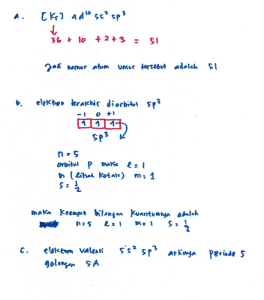 a. [Kr] 4d¹⁰ 5s² 5p³
↓
36 + 10 + 2 + 3 = 51
Jadi nomor atom unsur tersebut adalah 51
b. elektron terakhir diorbital 5p³
-1 0 +1
1 1 1
5p³
n = 5
orbital P maka l = 1
m (lihat kotak) m = 1
s = 1/2
maka keempat bilangan kuantumnya adalah
n=5 l=1 m=1 s=1/2
c. elektron valensi 5s² 5p³ artinya periode 5
golongan 5A